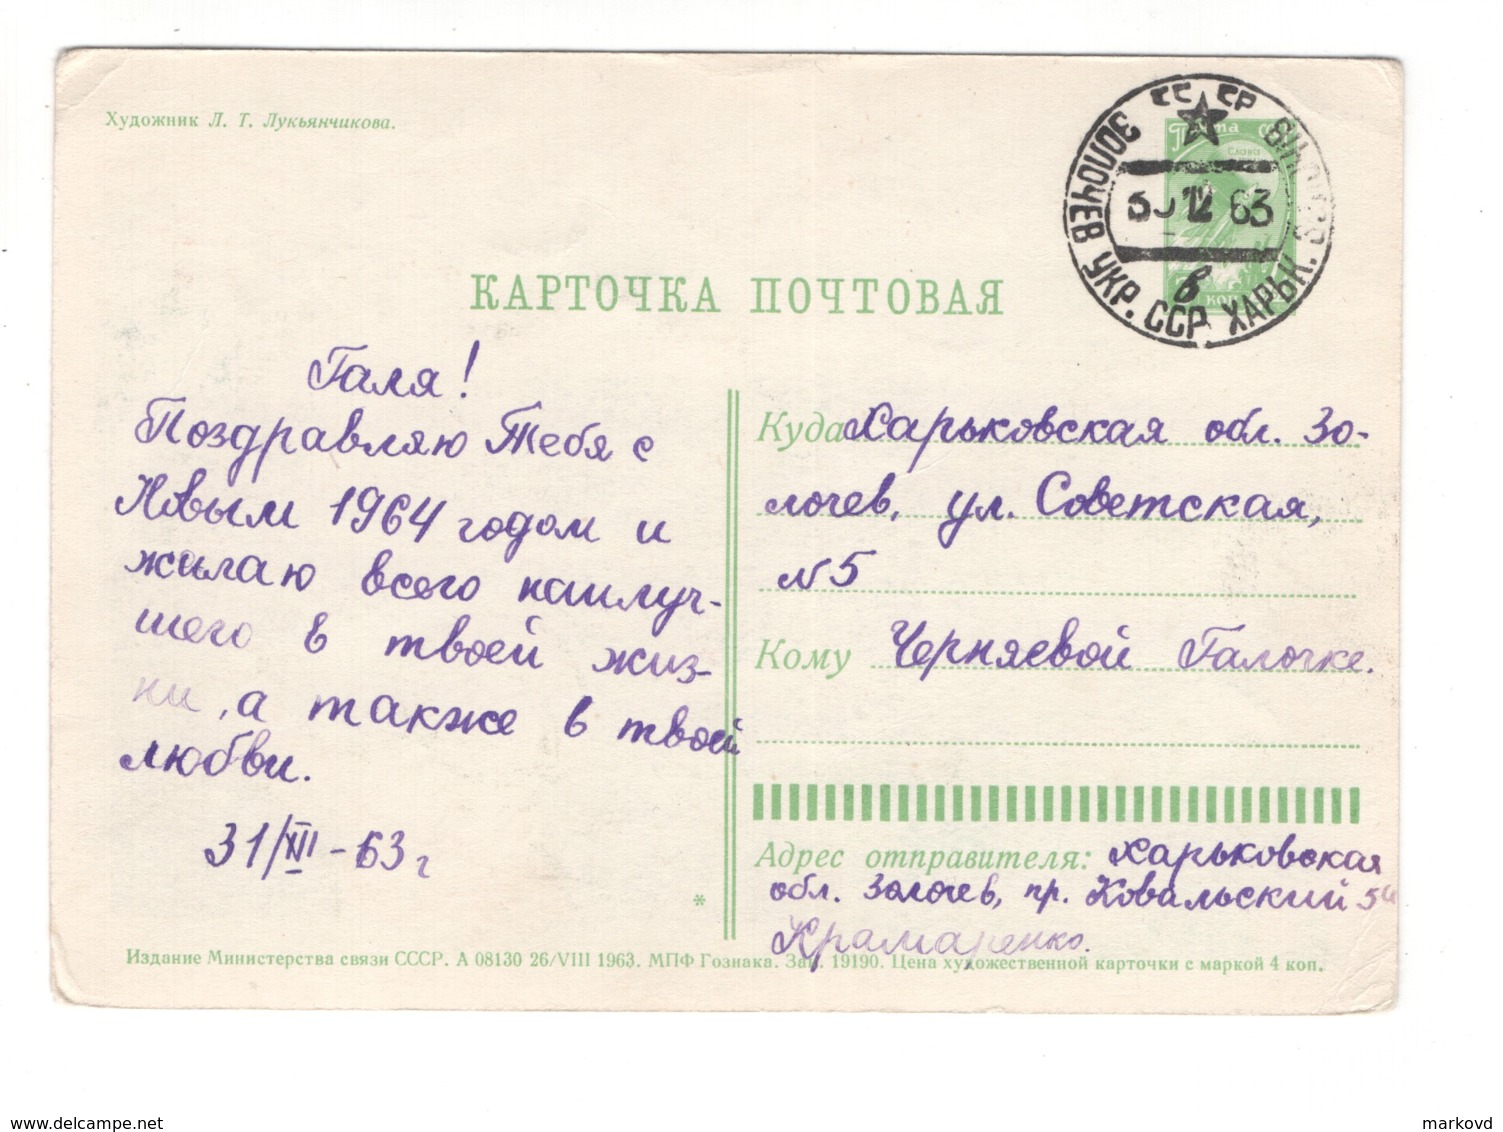 Художник Л. Т. Лукьянчикова.
СС СР
ЗОЛОЧЕВ УКР. ССР ХАРЬК.
12 63
в
Почта
Слава
коп
КАРТОЧКА ПОЧТОВАЯ
Галя!
Поздравляю Тебя с
Новым 1964 годом и
желаю всего наилуч-
шего в твоей жиз-
ни, а также в твоей
любви.
31/XII – 63 г
*
Куда Харьковская обл. Зо-
лочев, ул. Советская,
№5
Кому Черняевой Галочке.
Адрес отправителя: Харьковская
обл. Золочев, пр. Ковальский
Крамаренко.
Издание Министерства связи СССР. А 08130 26/VIII 1963. МПФ Гознака. Зак. 19190. Цена художественной карточки с маркой 4 коп.
www.delcampe.net
markovd